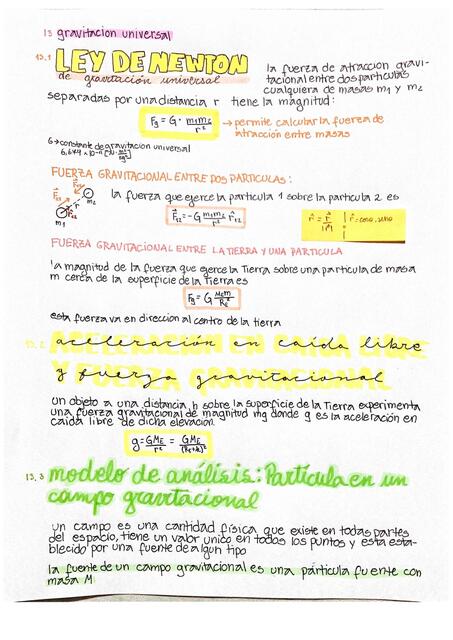 13 gravitacion universal
13.1 LEY DE NEWTON
de gravitación universal
la fuerza de atracción gravi-
tacional entre dos particulas
cualquiera de masas m1 y m2
separadas por una distancia r tiene la magnitud:
Fg = G · m1m2/r² → permite calcular la fuerza de
atracción entre masas
G→constante de gravitacion universal
FUERZA GRAVITACIONAL ENTRE DOS PARTICULAS:
la fuerza que ejerce la particula 1 sobre la particula 2 es
F12 = -G m1m2/r² r̂12
m1 r m2
FUERZA GRAVITACIONAL ENTRE LA TIERRA Y UNA PARTICULA
la magnitud de la fuerza que ejerce la Tierra sobre una particula de masa
m cerca de la superficie de la Tierra es
Fg = G MEm/RE²
esta fuerza va en dirección al centro de la tierra
13.2 aceleración en caída libre
y fuerza gravitacional
un objeto a una distancia h sobre la superficie de la Tierra experimenta
una fuerza gravitacional de magnitud mg donde g es la aceleración en
caída libre de dicha elevación.
g = GME/r² = GME/(RE+h)²
13.3 modelo de análisis: Partícula en un
campo gravitacional
un campo es una cantidad física que existe en todas partes
del espacio, tiene un valor unico en todos los puntos y esta esta-
blecido por una fuente de algun tipo
la fuente de un campo gravitacional es una párticula fuente con
masa M